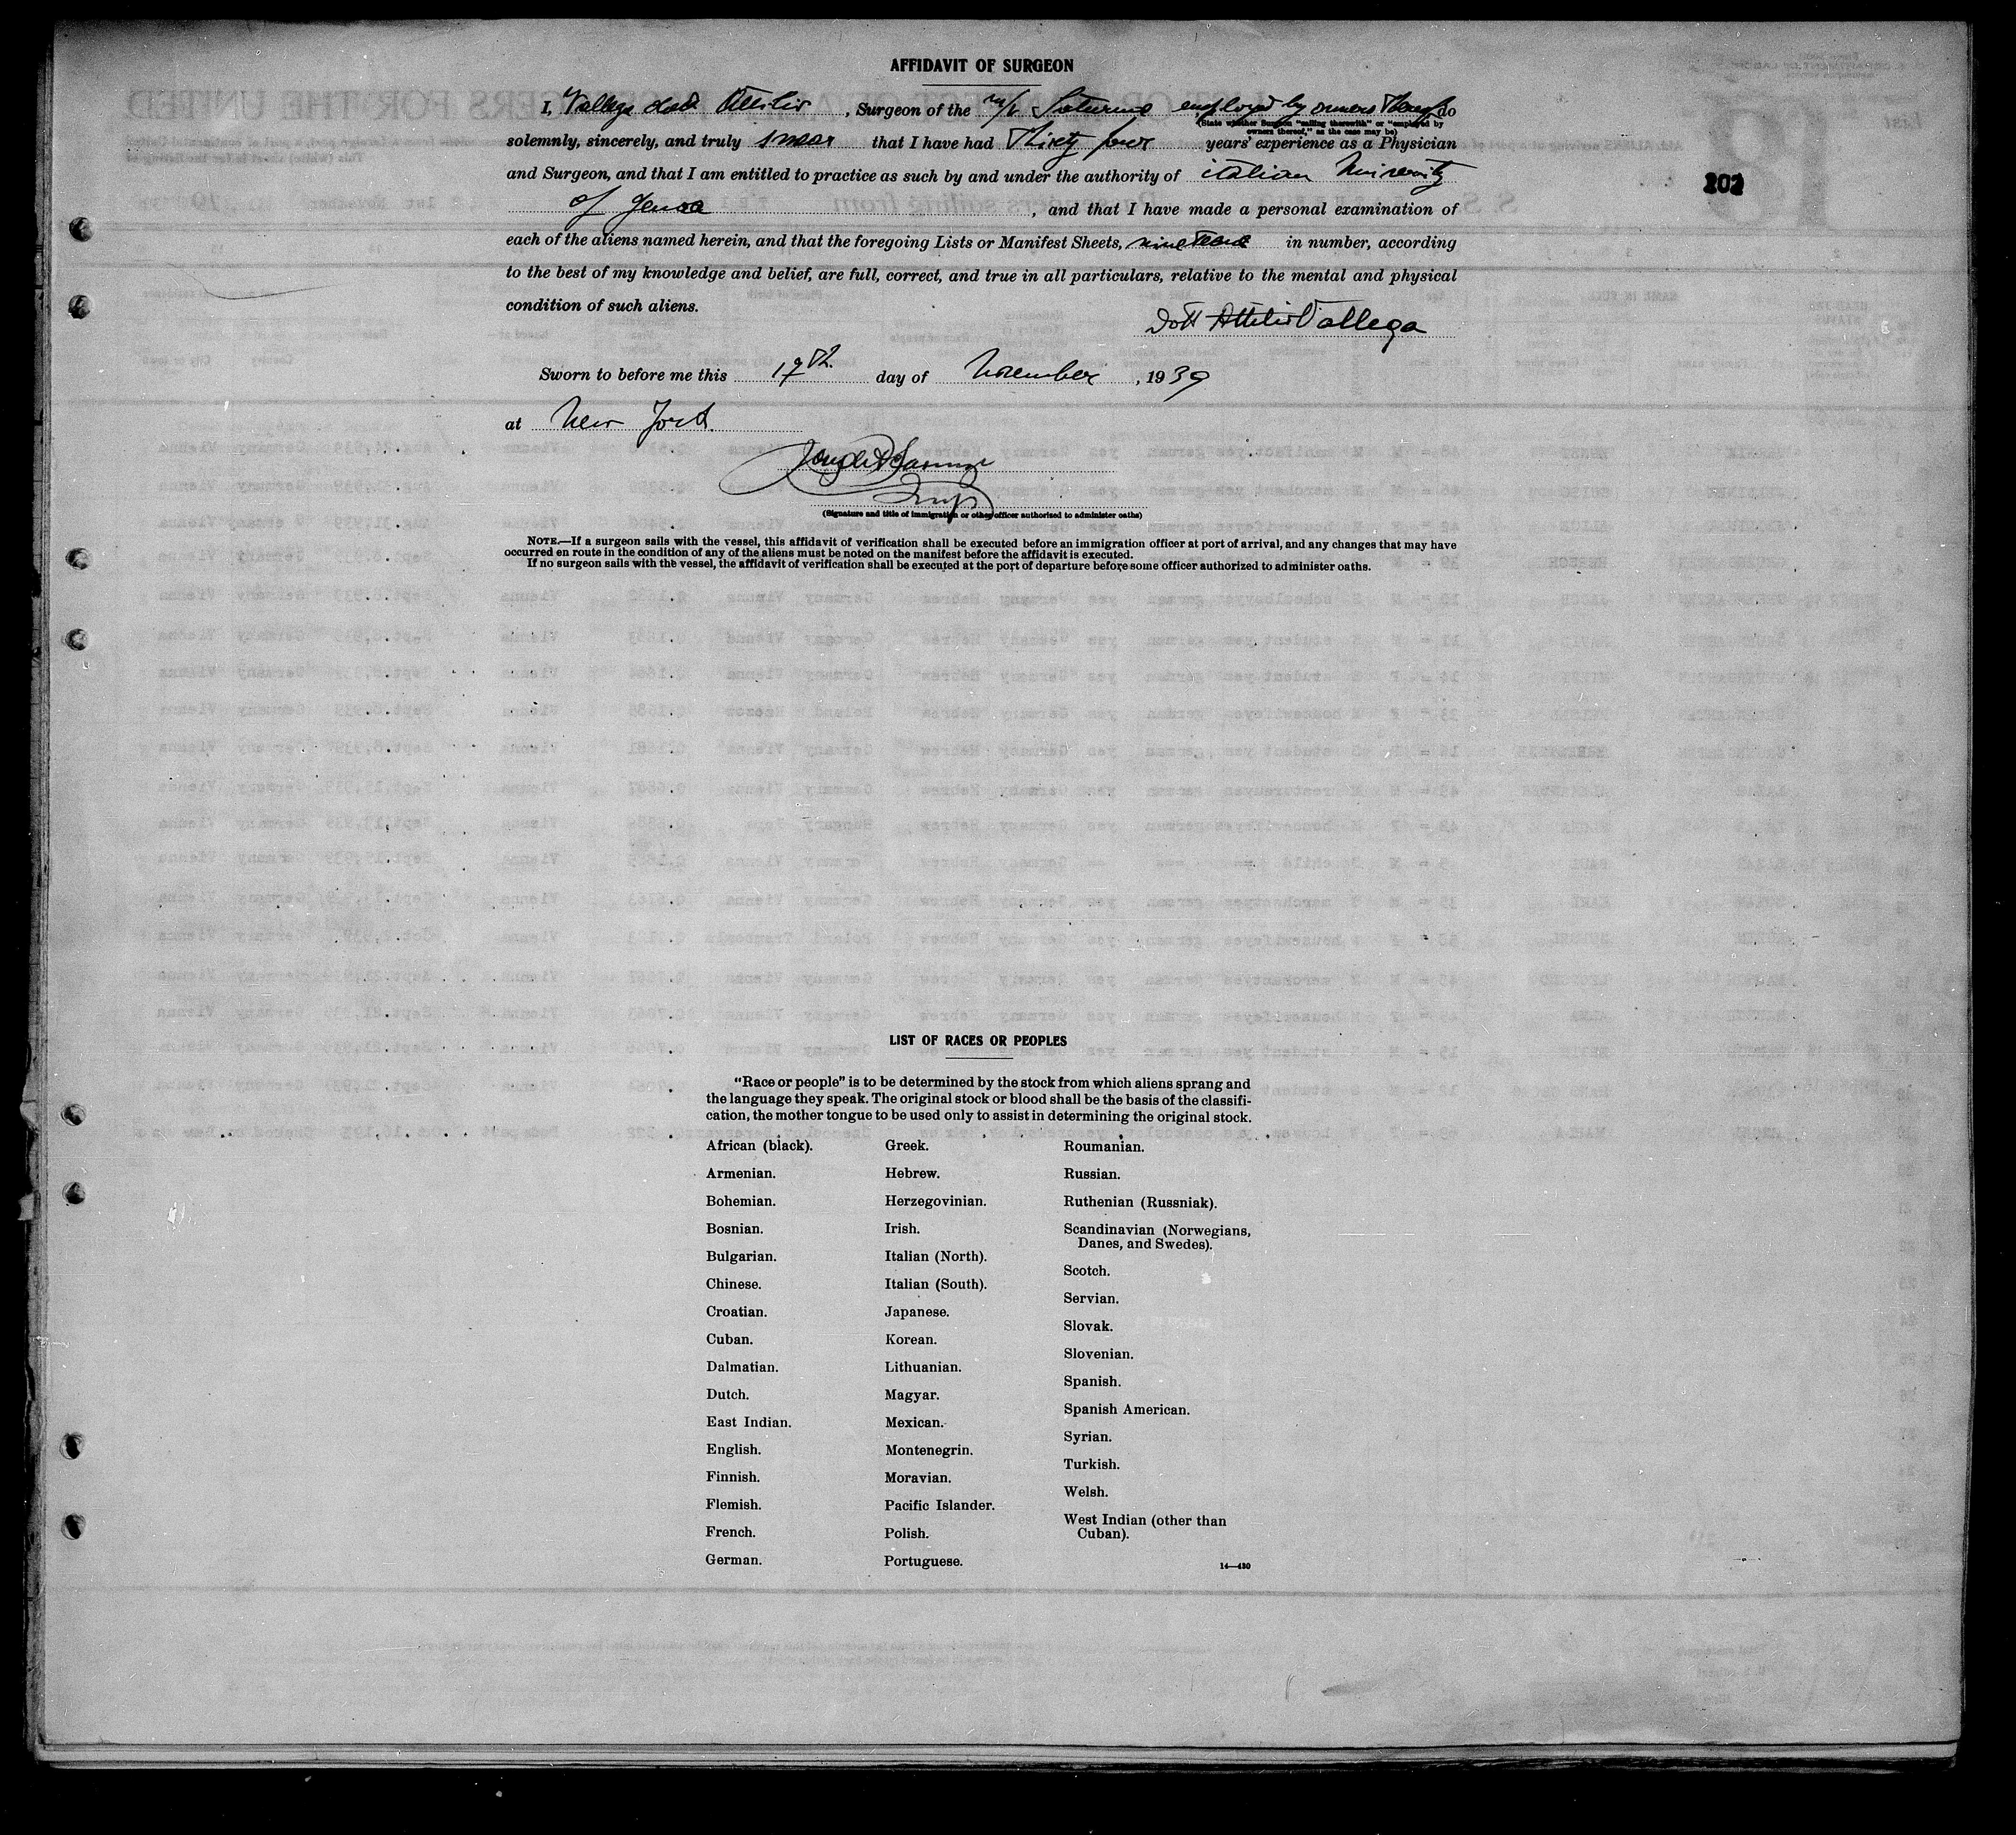 AFFIDAVIT OF SURGEON
I, Vallega dott Attilio, Surgeon of the m/v Saturnia employed by owners thereof do
(State whether Surgeon "sailing therewith" or "employed by owners thereof," as the case may be)
solemnly, sincerely, and truly swear that I have had Thirty four years' experience as a Physician
and Surgeon, and that I am entitled to practice as such by and under the authority of italian University
202
of Genoa, and that I have made a personal examination of
each of the aliens named herein, and that the foregoing Lists or Manifest Sheets, nineteen in number, according
to the best of my knowledge and belief, are full, correct, and true in all particulars, relative to the mental and physical
condition of such aliens.
Dott Attilio Vallega
Sworn to before me this 17th. day of November, 1939
at New York
(Signature and title of immigration or other officer authorized to administer oaths)
NOTE.—If a surgeon sails with the vessel, this affidavit of verification shall be executed before an immigration officer at port of arrival, and any changes that may have
occurred en route in the condition of any of the aliens must be noted on the manifest before the affidavit is executed.
If no surgeon sails with the vessel, the affidavit of verification shall be executed at the port of departure before some officer authorized to administer oaths.
LIST OF RACES OR PEOPLES
"Race or people" is to be determined by the stock from which aliens sprang and
the language they speak. The original stock or blood shall be the basis of the classifi-
cation, the mother tongue to be used only to assist in determining the original stock.
African (black).
Armenian.
Bohemian.
Bosnian.
Bulgarian.
Chinese.
Croatian.
Cuban.
Dalmatian.
Dutch.
East Indian.
English.
Finnish.
Flemish.
French.
German.
Greek.
Hebrew.
Herzegovinian.
Irish.
Italian (North).
Italian (South).
Japanese.
Korean.
Lithuanian.
Magyar.
Mexican.
Montenegrin.
Moravian.
Pacific Islander.
Polish.
Portuguese.
Roumanian.
Russian.
Ruthenian (Russniak).
Scandinavian (Norwegians,
Danes, and Swedes).
Scotch.
Servian.
Slovak.
Slovenian.
Spanish.
Spanish American.
Syrian.
Turkish.
Welsh.
West Indian (other than
Cuban).
14—430